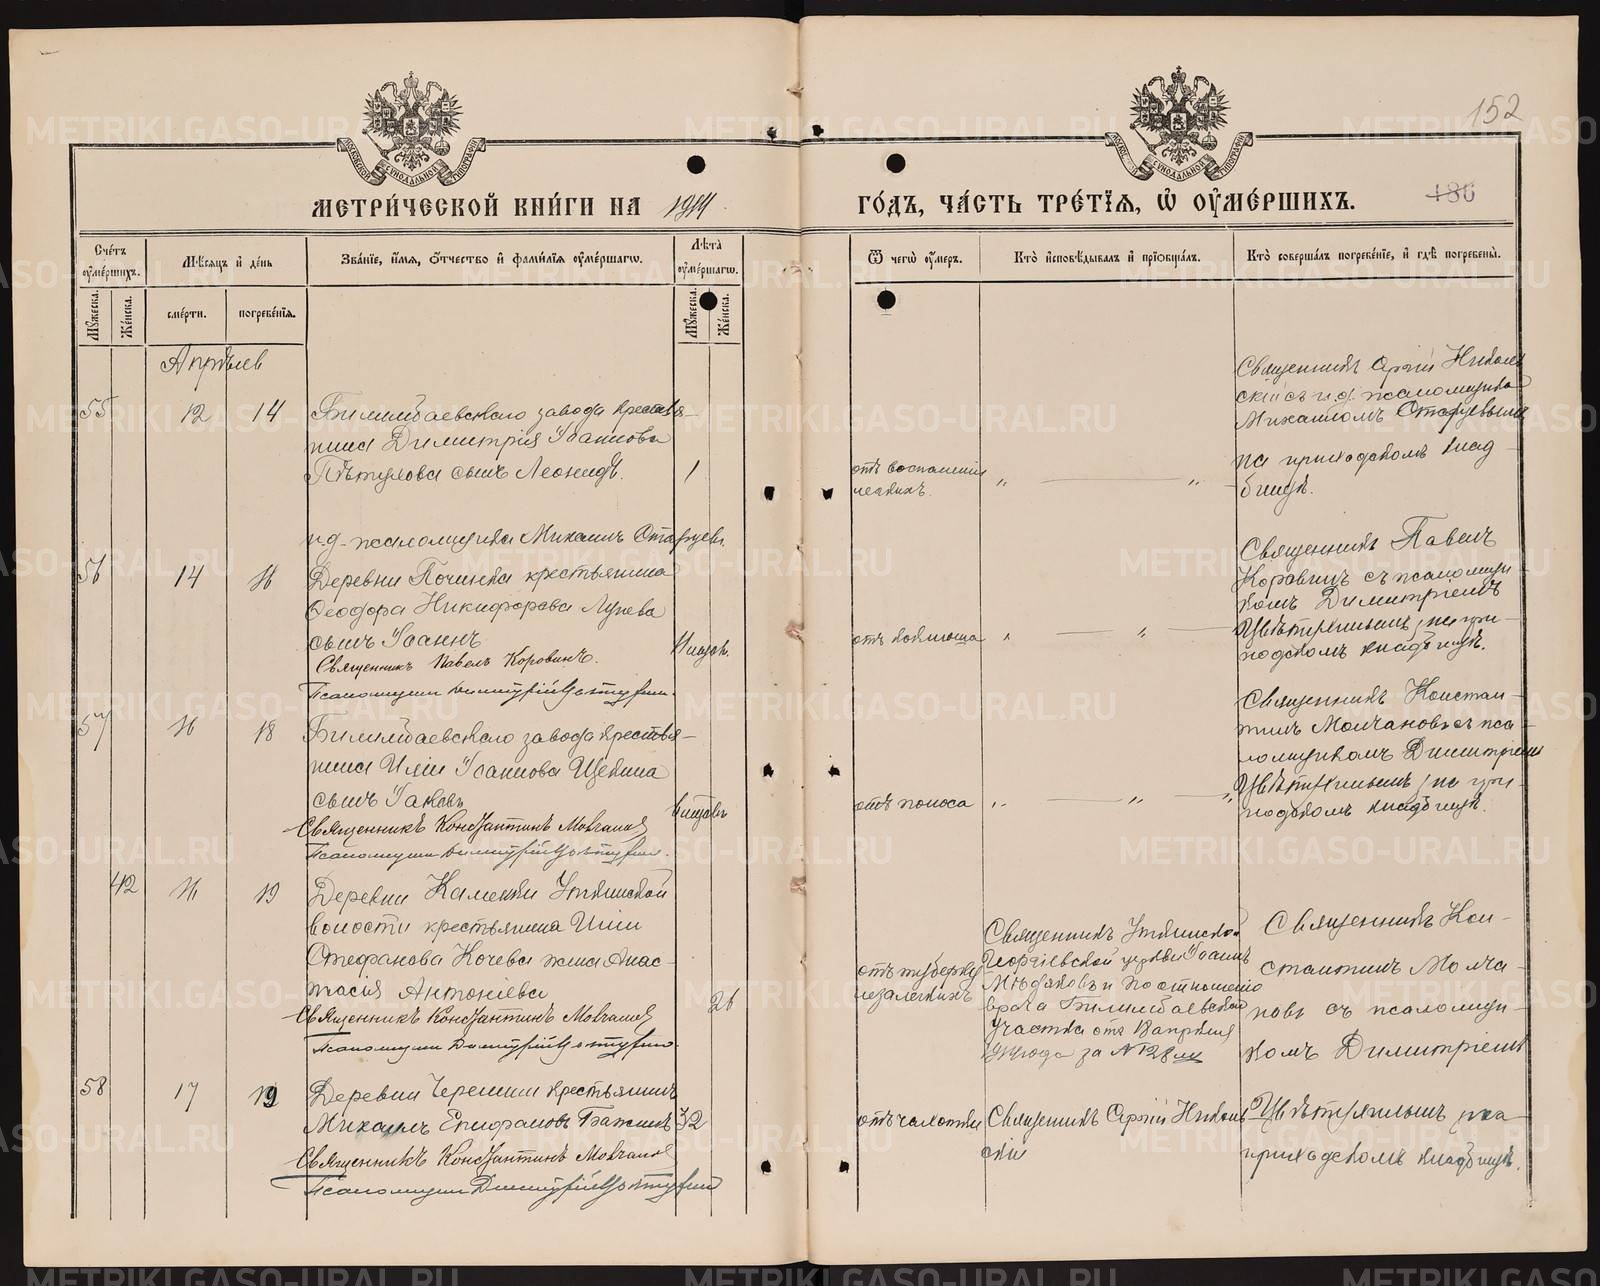 152
МЕТРИ́ЧЕСКОЙ КНИ́ГИ НА 1914
ГО́ДЪ, ЧА́СТЬ ТРЕ́ТЇѦ, Ѽ ОУ҆МЕ́РШИХЪ.
186
Сче́тъ оу҆ме́ршихъ.
Мѣ́сѧцъ и҆ де́нь
Зва́нїе, и҆́мѧ, ѻ҆́тчество и҆ фами́лїѧ оу҆ме́ршагѡ.
Лѣ́та оу҆ме́ршагѡ.
Ѿ чегѡ̀ оу҆́меръ.
Кто̀ и҆сповѣ́дывалъ и҆ прїѡбща́лъ.
Кто̀ соверша́лъ погребе́нїе, и҆ гдѣ̀ погребены̀.
Мꙋ́жеска.
Же́нска.
сме́рти.
погребе́нїѧ.
Мꙋ́жеска.
Же́нска.
Апрѣль
55 12 14
Билимбаевскаго завода крестья-
нина Димитрія Іоаннова
Пѣтухова сынъ Леонидъ.
1
отъ воспаленія
легкихъ.
Священникъ Сергій Николаев
скій съ и.д. псаломщика
Михаиломъ
на приходскомъ клад-
бищѣ.
и.д. псаломщика Михаилъ
56 14 16
Деревни Починка крестьянина
Ѳеодора Никифорова Лунева
сынъ Іоаннъ
Священникъ Павелъ Коровинъ.
Псаломщикъ Димитрій
отъ коклюша
Священникъ Павелъ
Коровинъ съ псаломщи
комъ Димитріемъ
на при-
ходскомъ кладбищѣ.
57 16 18
Билимбаевскаго завода крестья-
нина Иліи Іоаннова Щекина
сынъ Іаковъ
Священникъ Константинъ Молчановъ
Псаломщикъ Димитрій
отъ поноса
Священникъ Констан-
тинъ Молчановъ съ пса-
ломщикомъ Димитріемъ
на при-
ходскомъ кладбищѣ.
42 16 19
Деревни Каменки Уткинской
волости крестьянина Иліи
Стефанова Кочева жена Анас-
тасія Антоніева
Священникъ Константинъ Молчановъ
Псаломщикъ Димитрій
26
отъ туберку
леза легкихъ
Священникъ Уткинской
Георгіевской церкви Іоаннъ
Мѣдяковъ и по отношенію
врача Билимбаевскаго
участка отъ 18 апрѣля
1914 года за № 128
Священникъ Кон-
стантинъ Молча-
новъ съ псаломщи-
комъ Димитріемъ
58 17 19
Деревни Черемши крестьянинъ
Михаилъ Епифановъ Бажинъ 32
Священникъ Константинъ Молчановъ
Псаломщикъ Димитрій
отъ чахотки
Священникъ Сергій Николаев
скій
на
приходскомъ кладбищѣ.
METRIKI.GASO-URAL.RU